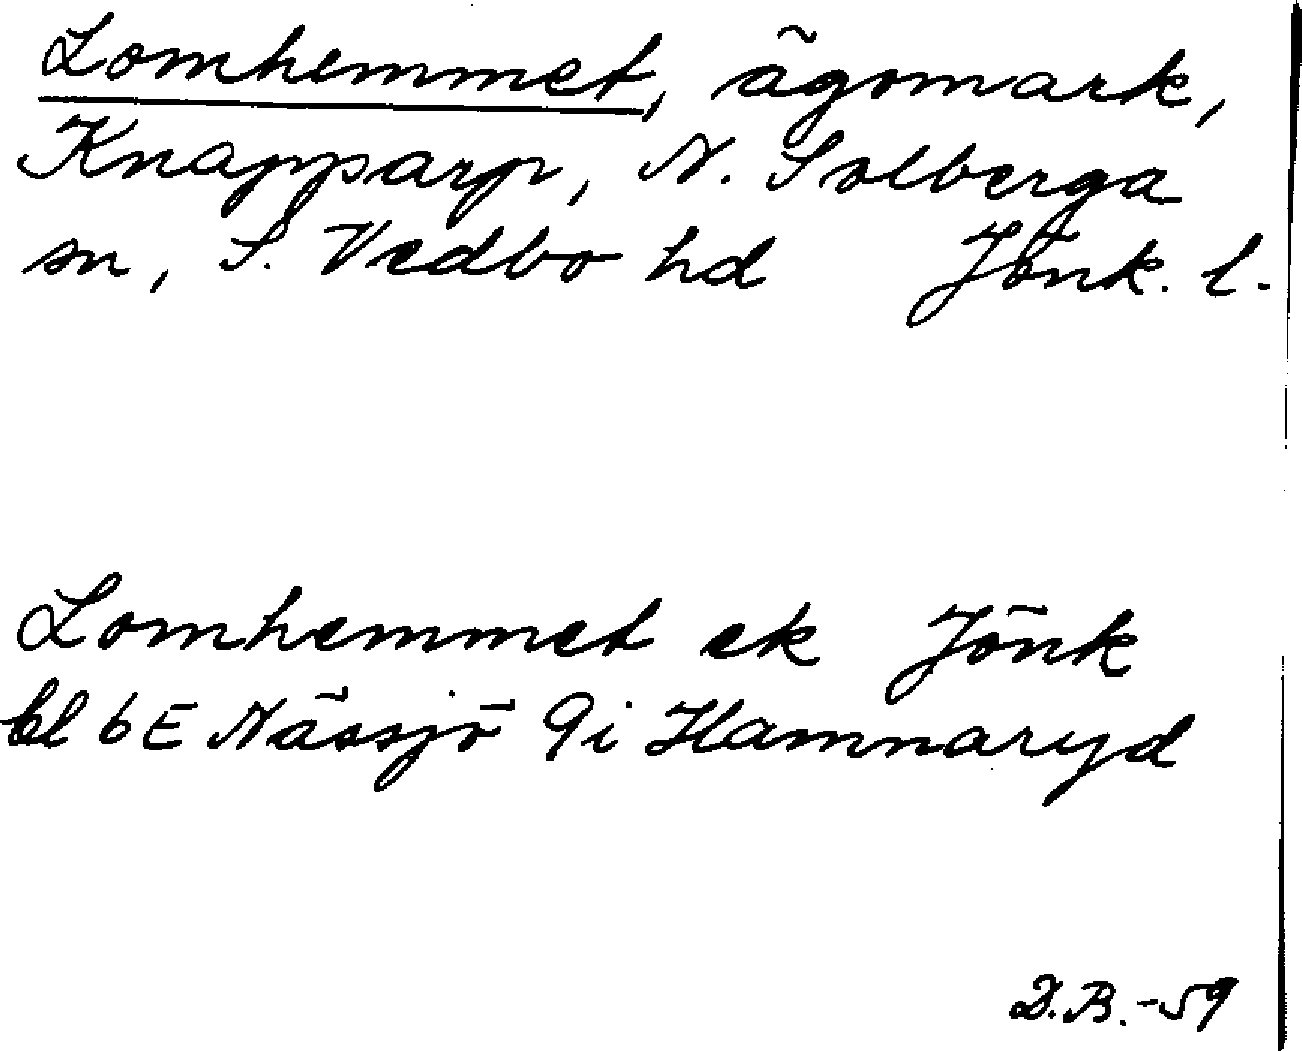 Lomhemmet, ägomark,
Knapparp, N. Solberga
sn, S. Vedbo hd Jönk. l.
Lomhemmet ek Jönk
bl 6E Nässjö 9i Hamnaryd
D.B.-59